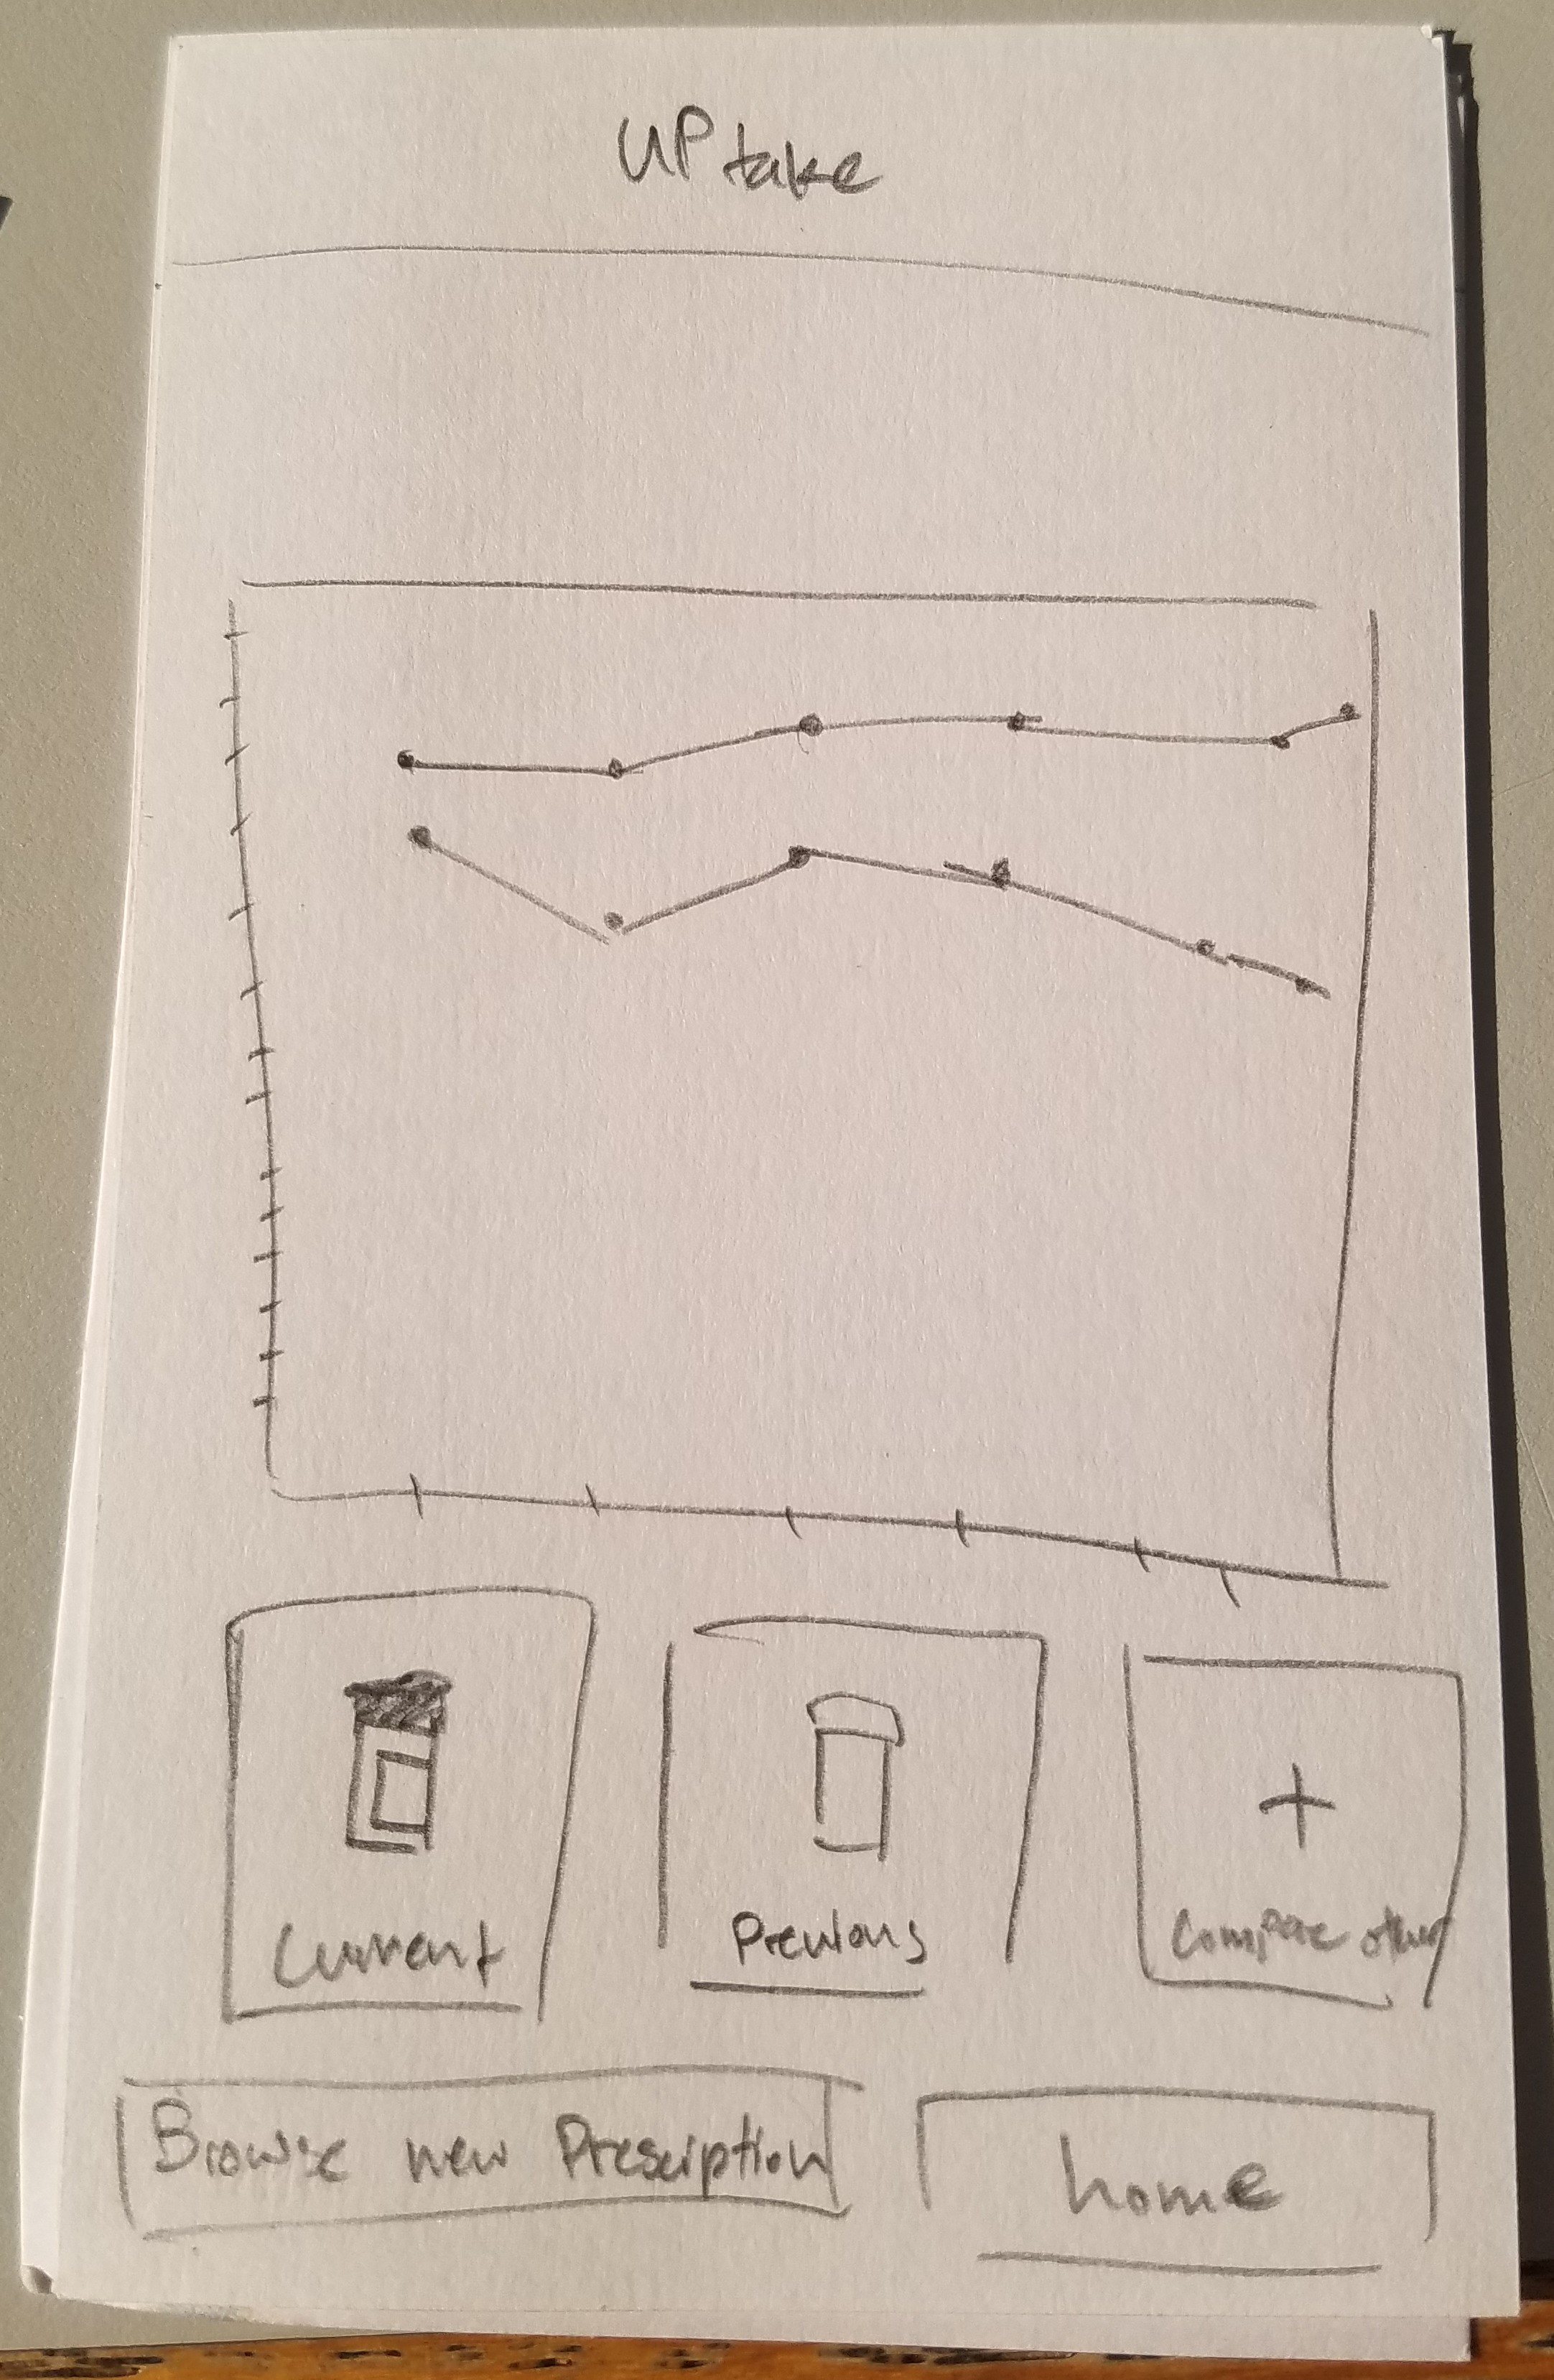 UPtake
Current
Previous
Compare other
Browse new Prescription
home